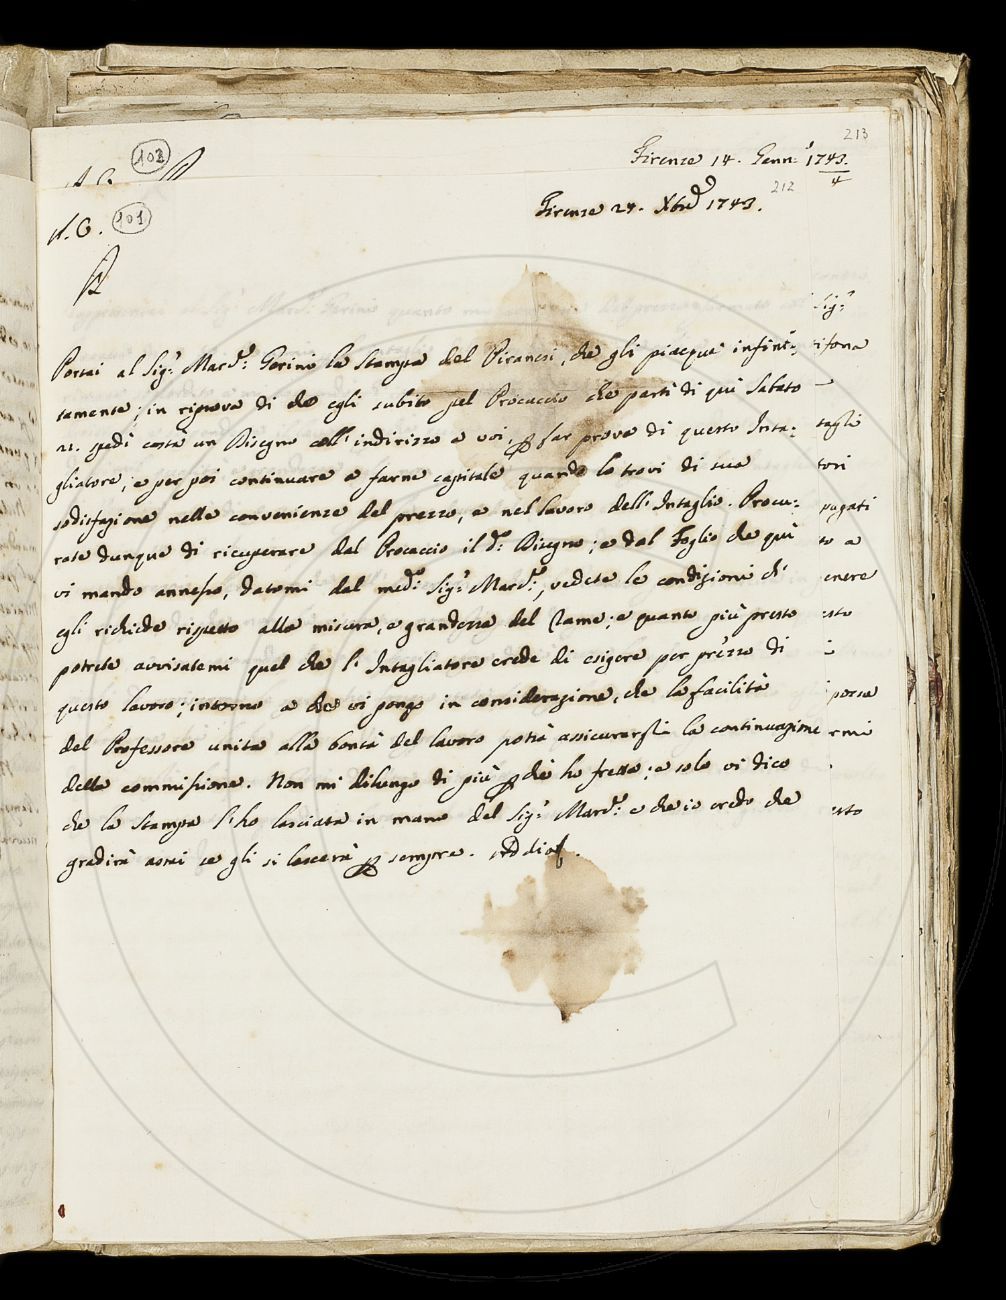 213
102
Firenze 14. Genn.º 1743.
4
212
A. C.
101
Firenze 24. Xbre 1743.
A. C.
Portai al Sig.r March.e Gerini la Stampa del Piranesi, che gli piacque infini=
tamente; in riprova di che egli subito pel Procaccio che partì di quì Sabato
21. spedì costà un Disegno coll' indirizzo a voi, per far prova di questo Inta=
gliatore, e per poi continuare a farne capitale quando lo trovi di sua
sodisfazione nella convenienza del prezzo, e nel lavoro dell' Intaglio. Procu=
rate dunque di ricuperare dal Procaccio il d.o Disegno; e dal Foglio che quì
vi mando annesso, datomi dal med.o Sig.r March.e, vedete le condizioni ch'
egli richiede rispetto alla misura, e grandezza del Rame; e quanto più presto
potrete avvisatemi quel che l' Intagliatore crede di esigere per prezzo di
questo lavoro; intorno a che vi pongo in considerazione, che la facilità
del Professore unita alla bontà del lavoro potrà assicurargli la continuazione
delle commissione. Non mi dilungo di più perchè ho fretta; e solo vi dico
che la Stampa l' ho lasciata in mano del Sig.r March.e e che io credo che
gradirà assai se gli si lascerà per sempre. Addio.
Sig.r
tagli
tori
pagati
to a
enere